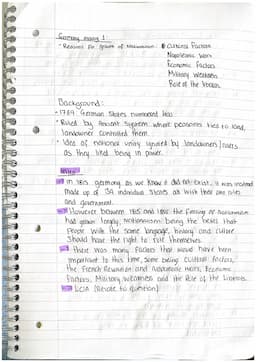 Germany essay 1:
• Reasons for growth of Nationalism: Cultural Factors
Napoleonic Wars
Economic Factors
Military Weakness
Role of the
Background:
• 1789 German States numbered 400
• Ruled by Ancient System where peasants tied to land,
landowner controlled them.
• Idea of national unity ignored by landowners/rulers
as they liked being in power.
In 1815 germany as we know it did not exist, it was instead
made up of 39 individual states all with their own rulers
and government.
However between 1815 and 1850 the feeling of Nationalism
had grown largely, Nationalism being the belief that
people with the same language, history and culture
should have the right to rule themselves.
There was many factors that would have been
important to this time, some being Cultural factors,
the French Revolution and Napoleonic Wars, Economic
Factors, Military weakness and the Role of the Liberals.
(Relate to question)